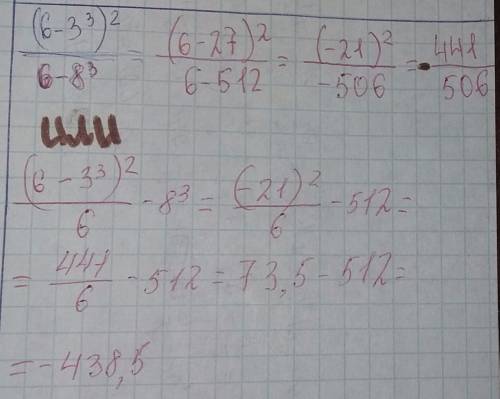 (6-3³)²/6-8³ = (6-27)²/6-512 = (-21)²/-506 = -441/506
или
(6-3³)²/6 - 8³ = (-21)²/6 - 512 =
= 441/6 - 512 = 73,5 - 512 =
= -438,5